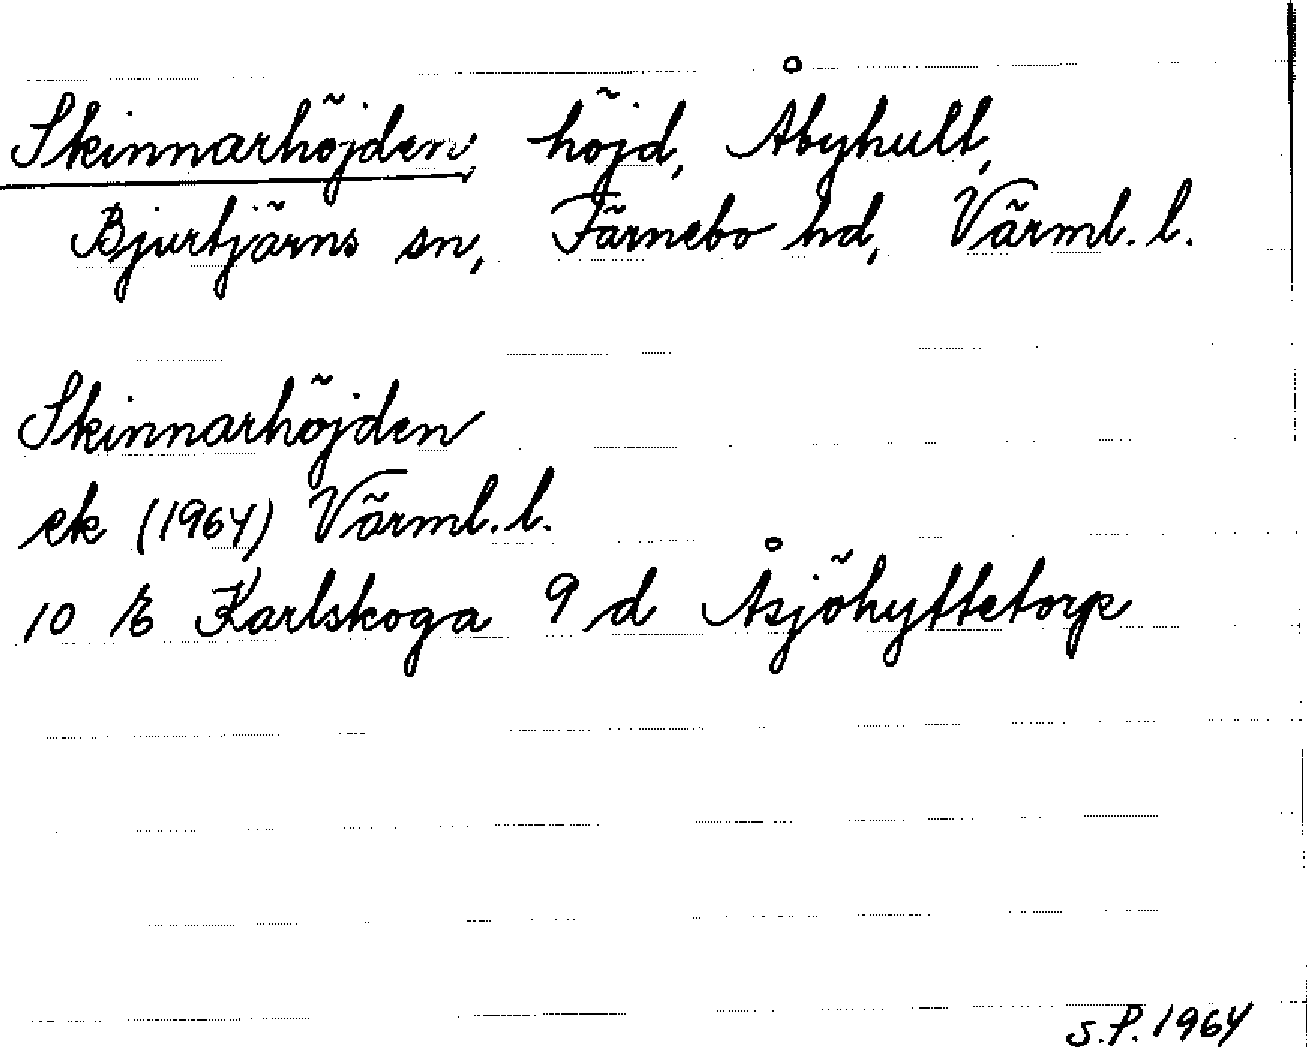 Skinnarhöjden, höjd, Åbyhult,
Bjurtjärns sn, Färnebo hd, Värml. l.
Skinnarhöjden
ek (1964) Värml. l.
10 E Karlskoga 9 d Åsjöhyttetorp
S.P. 1964